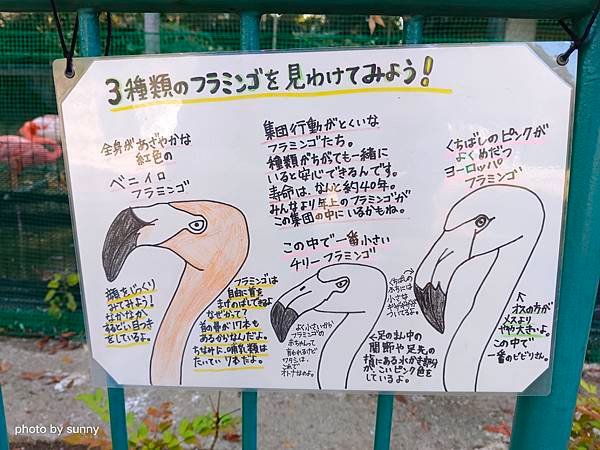 3種類のフラミンゴを見わけてみよう!
全身があざやかな
紅色の
ベニイロ
フラミンゴ
集団行動がとくいな
フラミンゴたち。
種類がちがても一緒に
いると安心できるんです。
寿命は、なんと約40年。
みんなより年上のフラミンゴが
この集団の中にいるかもね。
くちばしのピンクが
よくめだつ
ヨーロッパ
フラミンゴ
この中で一番小さい
チリーフラミンゴ
顔をじっくり
みてみよう!
なかなか
するどい目つき
をしているよ。
フラミンゴは
自由に首を
まげのばしできるよ
なぜかって?
首の骨が17本も
あるからなんだよ。
ちなみに、哺乳類は
たいてい7本だよ。
くちばしの
ふちには
小さな
ついてるよ。
よく小さいから
フラミンゴの
赤ちゃんって
言われるけど
ワタシは、
これで
オトナなのよ。
←足のまん中の
関節や足先の
指にある水かき部分
がこいピンク色を
しているよ。
オスの方が
メスより
やや大きいよ。
この中で
一番のビッグさん。
photo by sunny